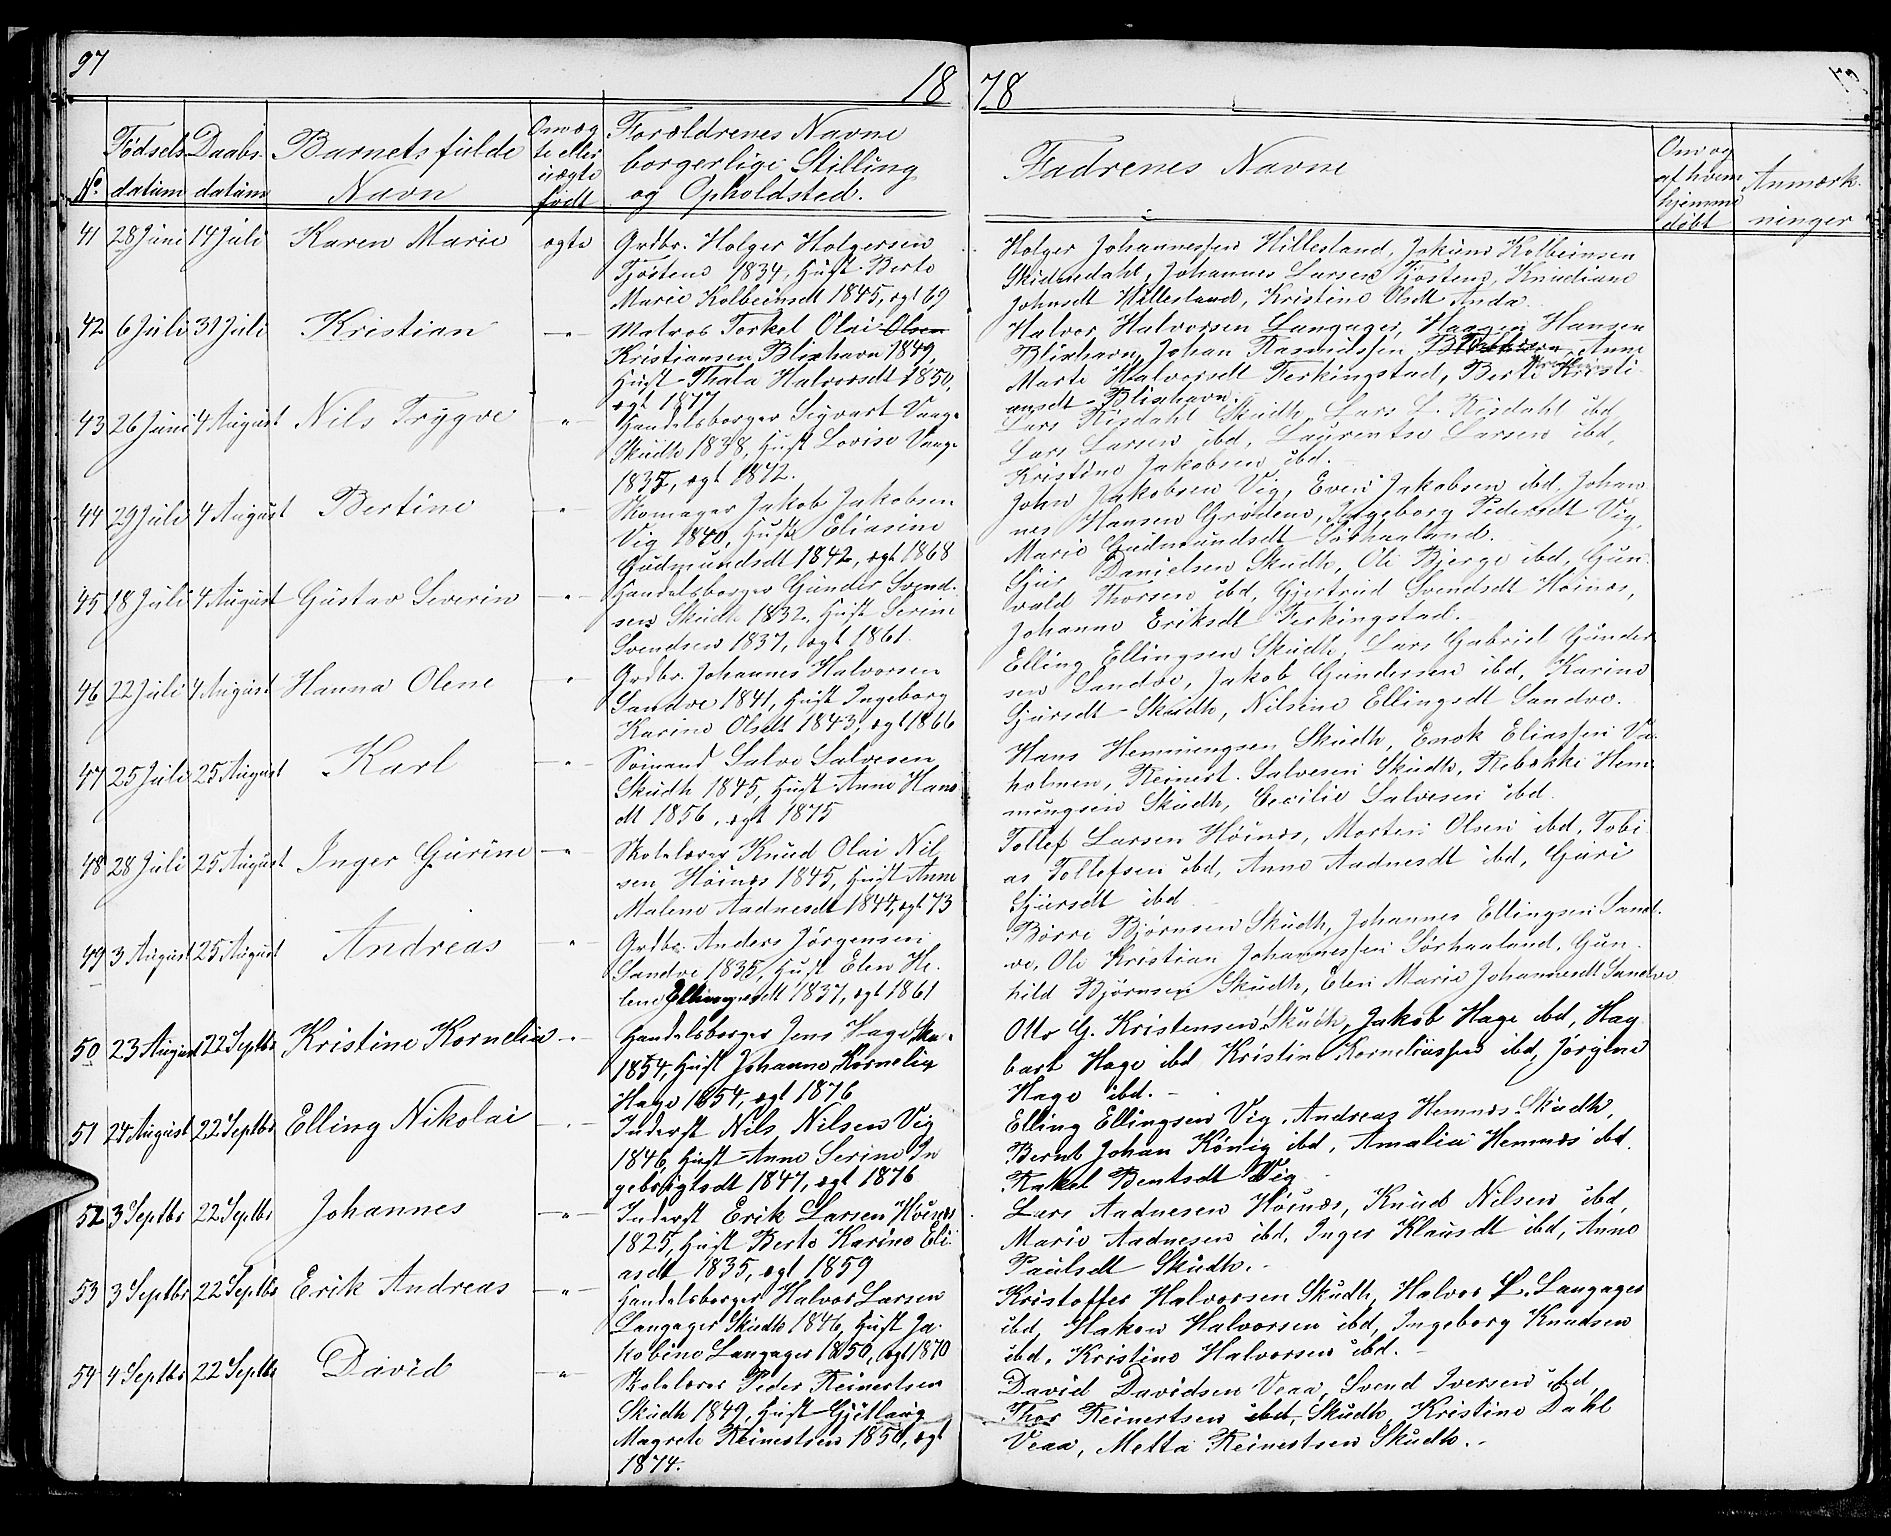 97
18 78
No
Fødsels datum
Daabs datum
Barnets fulde Navn
Om ægte eller uægte født
Forældrenes Navne borgerlige Stilling og Opholdsted.
Fadrenes Navne
Om og af hvem hjemme døbt
Anmærkninger
41 28 Juni 14 Juli Karen Marie ægte
Grdbr. Holger Holgersen
Tjøstene 1834, Hust Berte
Marie Kolbeinsdt 1845, ægt 69
Holger Johannessen Hillesland, Jakum Kolbeinsen
Skidnedahl, Johannes Larsen Tjøstene, Knudiane
Johnsdt Hillesland, Kristine Olsdt Anda
42 6 Juli 31 Juli Kristian -"-
Matros Torkel Olai Olsen
Kristiansen Blixhavn 1849,
Hust Thala Halvorsdt 1850,
ægt 1877
Halvor Halvorsen Langager, Haagen Hansen
Blixhavn, Johan Rasmussen, Anne
Marte Halvorsdt Ferkingstad, Berte Kristi-
ansdt Blixhavn.
43 26 Juni 4 August Nils Trygve -"-
Handelsborger Sigvart Vaage
Skudh 1838, Hust Lovise Vaage
1835, ægt 1872.
Lars Risdahl Skudh, Lars L. Risdahl ibd,
Lars Larsen ibd, Laurentse Larsen ibd,
Kristine Jakobsen ibd.
44 29 Juli 4 August Bertine -"-
Skomager Jakob Jakobsen
Vig 1840, Hust Eliasine
Gudmundsdt 1842, ægt 1868
John Jakobsen Vig, Even Jakobsen ibd, Johan-
nes Hansen Grødene, Ingeborg Pedersdt Vig,
Marie Gudmundsdt Sørhaaland.
45 18 Juli 4 August Gustav Severin -"-
Handelsborger Gunder Svend-
sen Skudh 1832, Hust Serine
Svendsen 1837, ægt 1861.
Sjur Danielsen Skudh, Ole Bjerge ibd, Gun-
vald Thorsen ibd, Gjertrud Svendsdt Høines,
Johanne Eriksdt Ferkingstad.
46 22 Juli 4 August Hanna Olene -"-
Grdbr. Johannes Halvorsen
Sandve 1841, Hust Ingeborg
Karine Olsdt 1843, ægt 1866
Elling Ellingsen Skudh, Lars Gabriel Gunder-
sen Sandve, Jakob Gundersen ibd, Karine
Sjursdt Skudh, Nilsine Ellingsdt Sandve.
47 25 Juli 25 August Karl -"-
Sømand Salve Salvesen
Skudh 1845, Hust Anne Hans-
dt 1856, ægt 1875
Hans Hemmingsen Skudh, Enok Eliassen Va-
holmen, Reinert Salvesen Skudh, Rebekke Hem-
mingsen Skudh, Cecilie Salvesen ibd.
48 28 Juli 25 August Inger Gurine -"-
Skolelærer Knud Olai Nil-
sen Høines 1845, Hust Anne
Malene Aadnesdt 1844, ægt 73
Tollef Larsen Høines, Morten Olsen ibd, Tobi-
as Tollefsen ibd, Anne Aadnesdt ibd, Guri
Sjursdt ibd
49 3 August 25 August Andreas -"-
Grdbr. Anders Jørgensen
Sandve 1835, Hust Elen He-
lene Ellingsdt 1837, ægt 1861
Børre Bjørnsen Skudh, Johannes Ellingsen Sand-
ve, Ole Kristian Johannessen Sørhaaland, Gun-
hild Bjørnsen Skudh, Elen Marie Johannesdt Sandve
50 23 August 22 Septbr Kristine Kornelia -"-
Handelsborger Jens Hage Sku.
1854, Hust Johanne Kornelia
Hage 1854, ægt 1876
Otto G. Kristensen Skudh, Jakob Hage ibd, Hag-
bart Hage ibd Kristine Korneliussen ibd, Jørgine
Hage ibd.
51 24 August 22 Septbr Elling Nikolai -"-
Inderst Nils Nilsen Vig
1846, Hust Anne Serine In-
gebrigtsdt 1847, ægt 1876
Elling Ellingsen Vig, Andreas Hemnes Skudh,
Bernt Johan König ibd, Amalia Hemnes ibd.
Rakel Bentsdt Vig
52 3 Septbr 22 Septbr Johannes -"-
Inderst Erik Larsen Høines
1825, Hust Berte Karine Eli-
asdt 1835, ægt 1859
Lars Aadnesen Høines, Knud Nilsen ibd,
Marie Aadnesen ibd, Inger Klausdt ibd, Anne
Paulsdt Skudh.
53 3 Septbr 22 Septbr Erik Andreas -"-
Handelsborger Halvor Larsen
Langager Skudh 1846, Hust Ja-
kobine Langager 1850, ægt 1870
Kristoffer Halvorsen Skudh, Halvor L. Langager
ibd, Hakon Halvorsen ibd, Ingeborg Knudsen
ibd, Kristine Halvorsen ibd.
54 4 Septbr 22 Septbr David -"-
Skolelærer Peder Reinertsen
Skudh 1849, Hust Gjetlaug
Magrete Reinertsen 1850, ægt
1874.
David Davidsen Veaa, Svend Iversen ibd,
Thor Reinertsen ibd, Skudh, Kristine Dahl
Veaa, Metta Reinertsen Skudh.